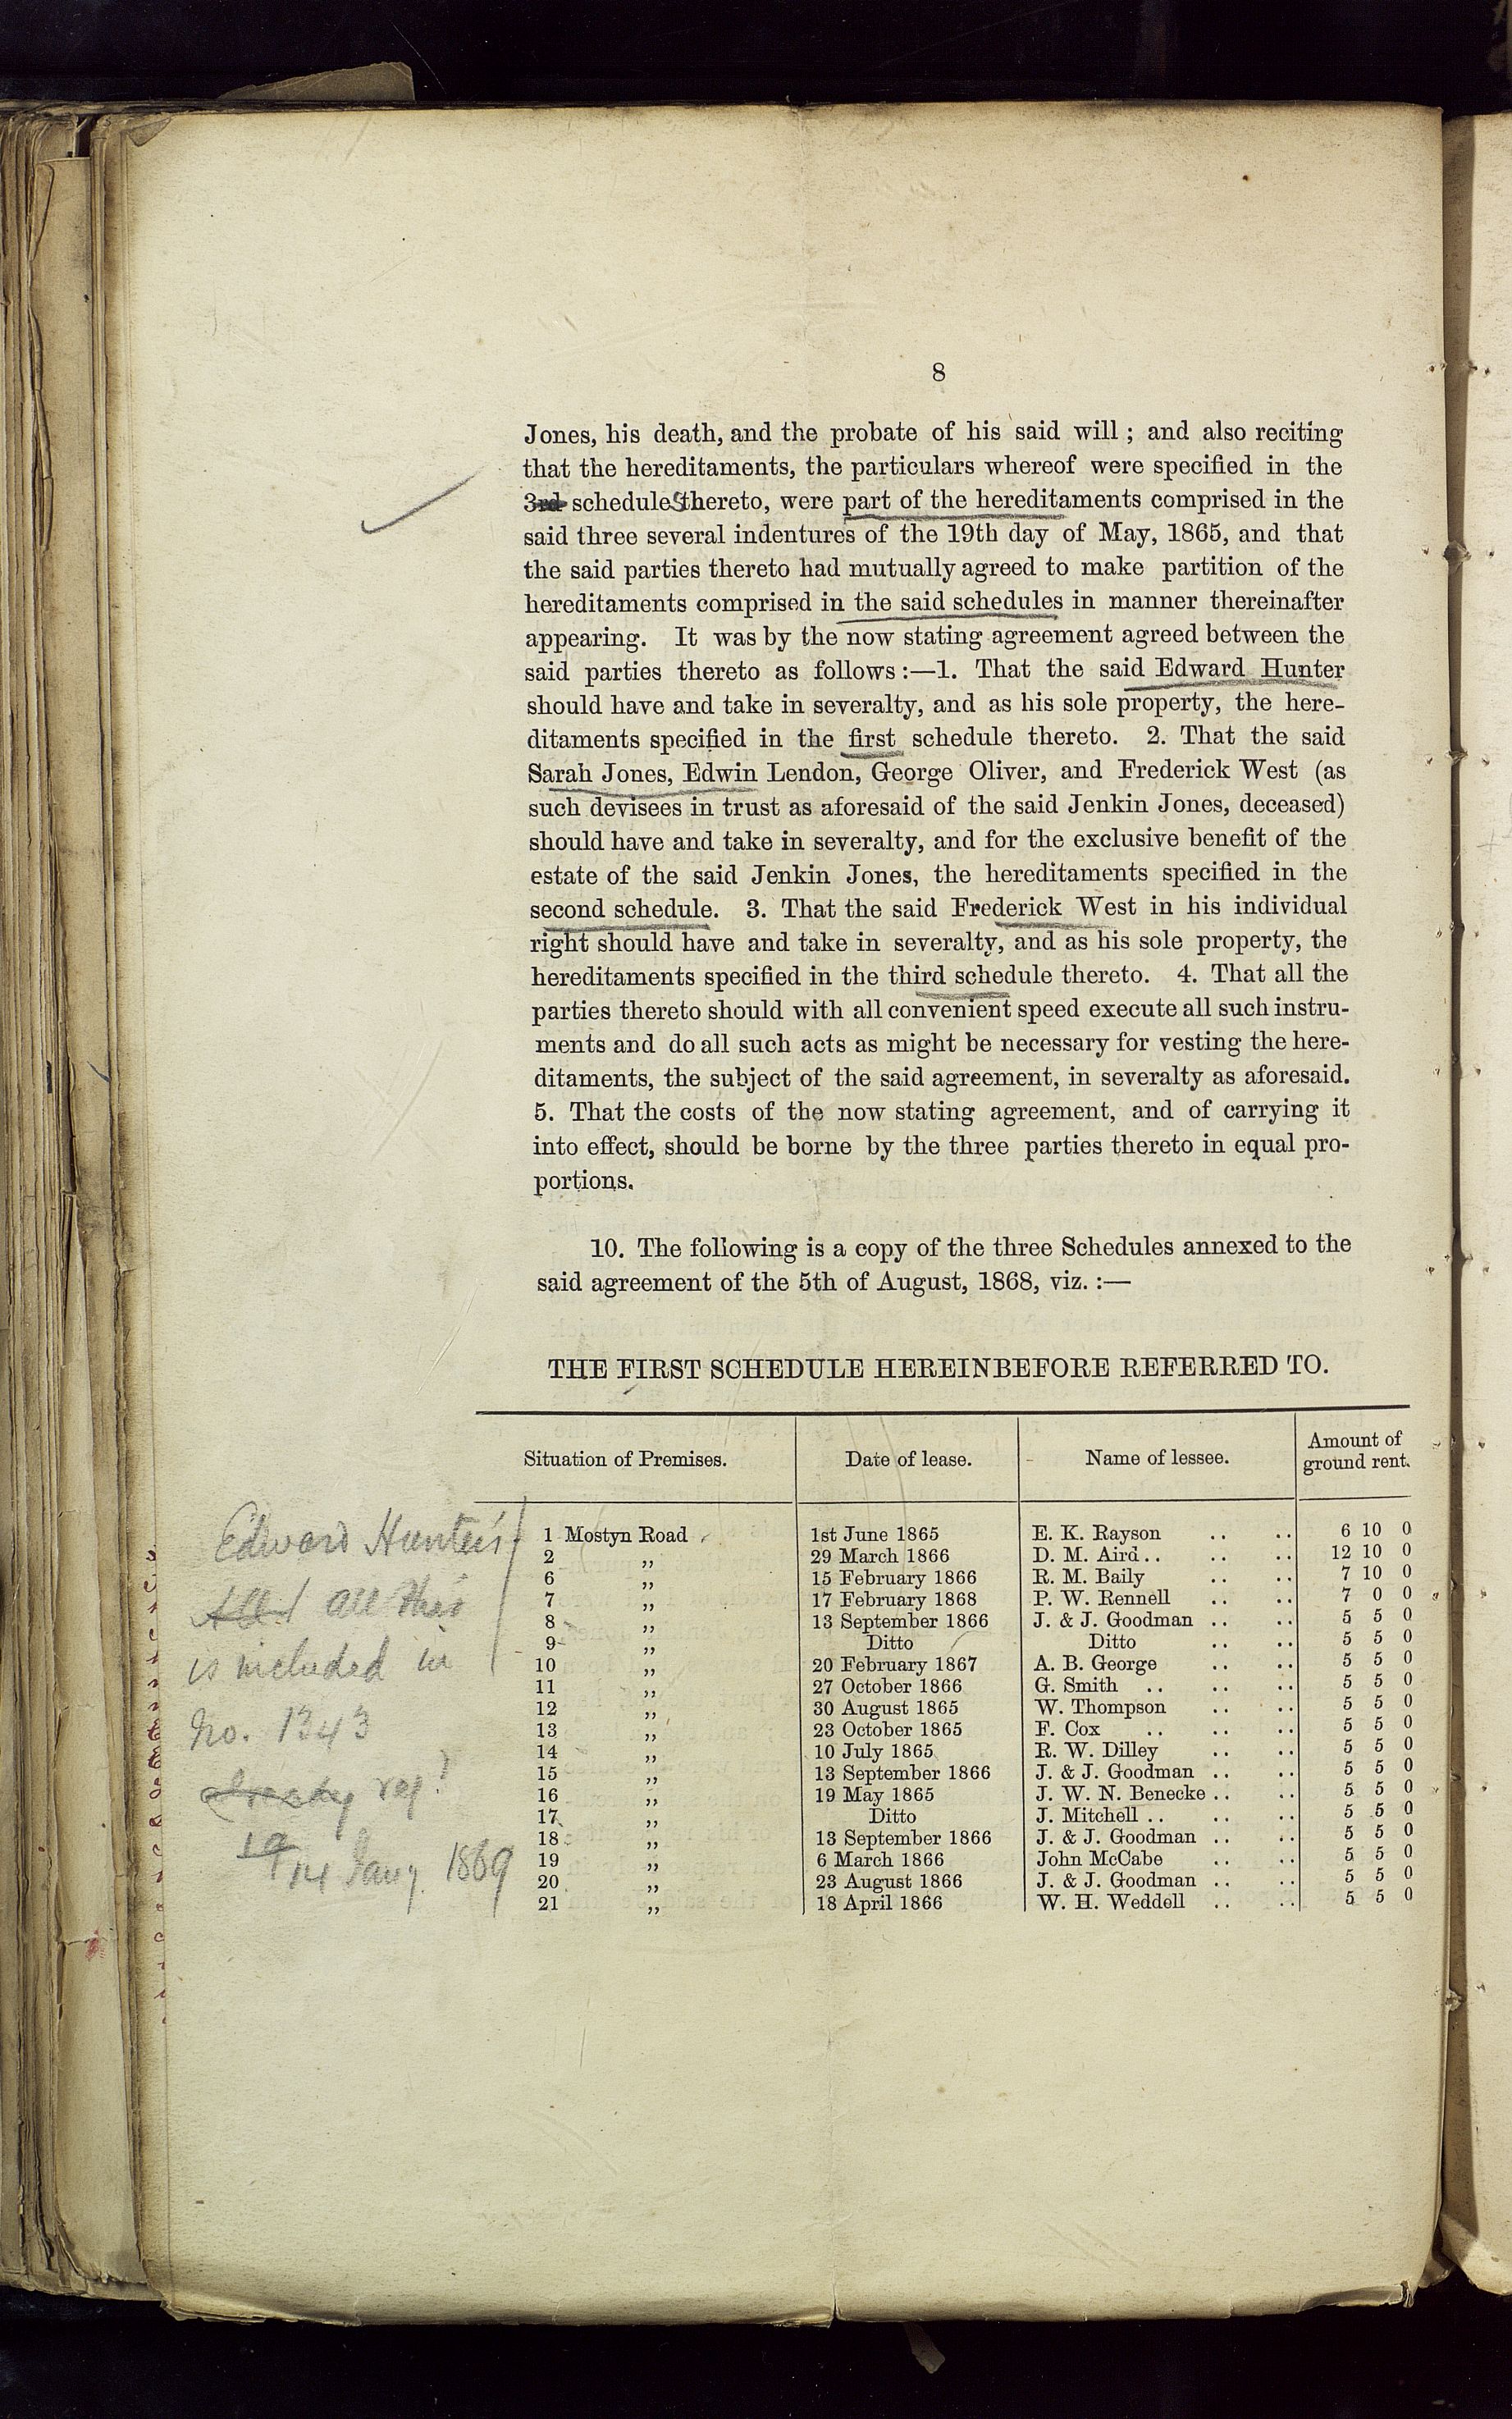 8
Jones, his death, and the probate of his said will ; and also reciting
that the hereditaments, the particulars whereof were specified in the
3rd schedules thereto, were part of the hereditaments comprised in the
said three several indentures of the 19th day of May, 1865, and that
the said parties thereto had mutually agreed to make partition of the
hereditaments comprised in the said schedules in manner thereinafter
appearing. It was by the now stating agreement agreed between the
said parties thereto as follows:—1. That the said Edward Hunter
should have and take in severalty, and as his sole property, the here-
ditaments specified in the first schedule thereto. 2. That the said
Sarah Jones, Edwin Lendon, George Oliver, and Frederick West (as
such devisees in trust as aforesaid of the said Jenkin Jones, deceased)
should have and take in severalty, and for the exclusive benefit of the
estate of the said Jenkin Jones, the hereditaments specified in the
second schedule. 3. That the said Frederick West in his individual
right should have and take in severalty, and as his sole property, the
hereditaments specified in the third schedule thereto. 4. That all the
parties thereto should with all convenient speed execute all such instru-
ments and do all such acts as might be necessary for vesting the here-
ditaments, the subject of the said agreement, in severalty as aforesaid.
5. That the costs of the now stating agreement, and of carrying it
into effect, should be borne by the three parties thereto in equal pro-
portions.
10. The following is a copy of the three Schedules annexed to the
said agreement of the 5th of August, 1868, viz. :—
THE FIRST SCHEDULE HEREINBEFORE REFERRED TO.
Situation of Premises. Date of lease. Name of lessee. Amount of ground rent.
1 Mostyn Road 1st June 1865 E. K. Rayson .. .. 6 10 0
2 ,, 29 March 1866 D. M. Aird .. .. .. 12 10 0
6 ,, 15 February 1866 R. M. Baily .. .. 7 10 0
7 ,, 17 February 1868 P. W. Rennell .. .. 7 0 0
8 ,, 13 September 1866 J. & J. Goodman .. .. 5 5 0
9 ,, Ditto Ditto .. .. 5 5 0
10 ,, 20 February 1867 A. B. George .. .. 5 5 0
11 ,, 27 October 1866 G. Smith .. .. .. 5 5 0
12 ,, 30 August 1865 W. Thompson .. .. 5 5 0
13 ,, 23 October 1865 F. Cox .. .. .. 5 5 0
14 ,, 10 July 1865 R. W. Dilley .. .. 5 5 0
15 ,, 13 September 1866 J. & J. Goodman .. .. 5 5 0
16 ,, 19 May 1865 J. W. N. Benecke .. .. 5 5 0
17 ,, Ditto J. Mitchell .. .. .. 5 5 0
18 ,, 13 September 1866 J. & J. Goodman .. .. 5 5 0
19 ,, 6 March 1866 John McCabe .. .. 5 5 0
20 ,, 23 August 1866 J. & J. Goodman .. .. 5 5 0
21 ,, 18 April 1866 W. H. Weddell .. .. 5 5 0
Edward Hunter's
all this
is included in
No. 1343
already reg!
14 Jany. 1869